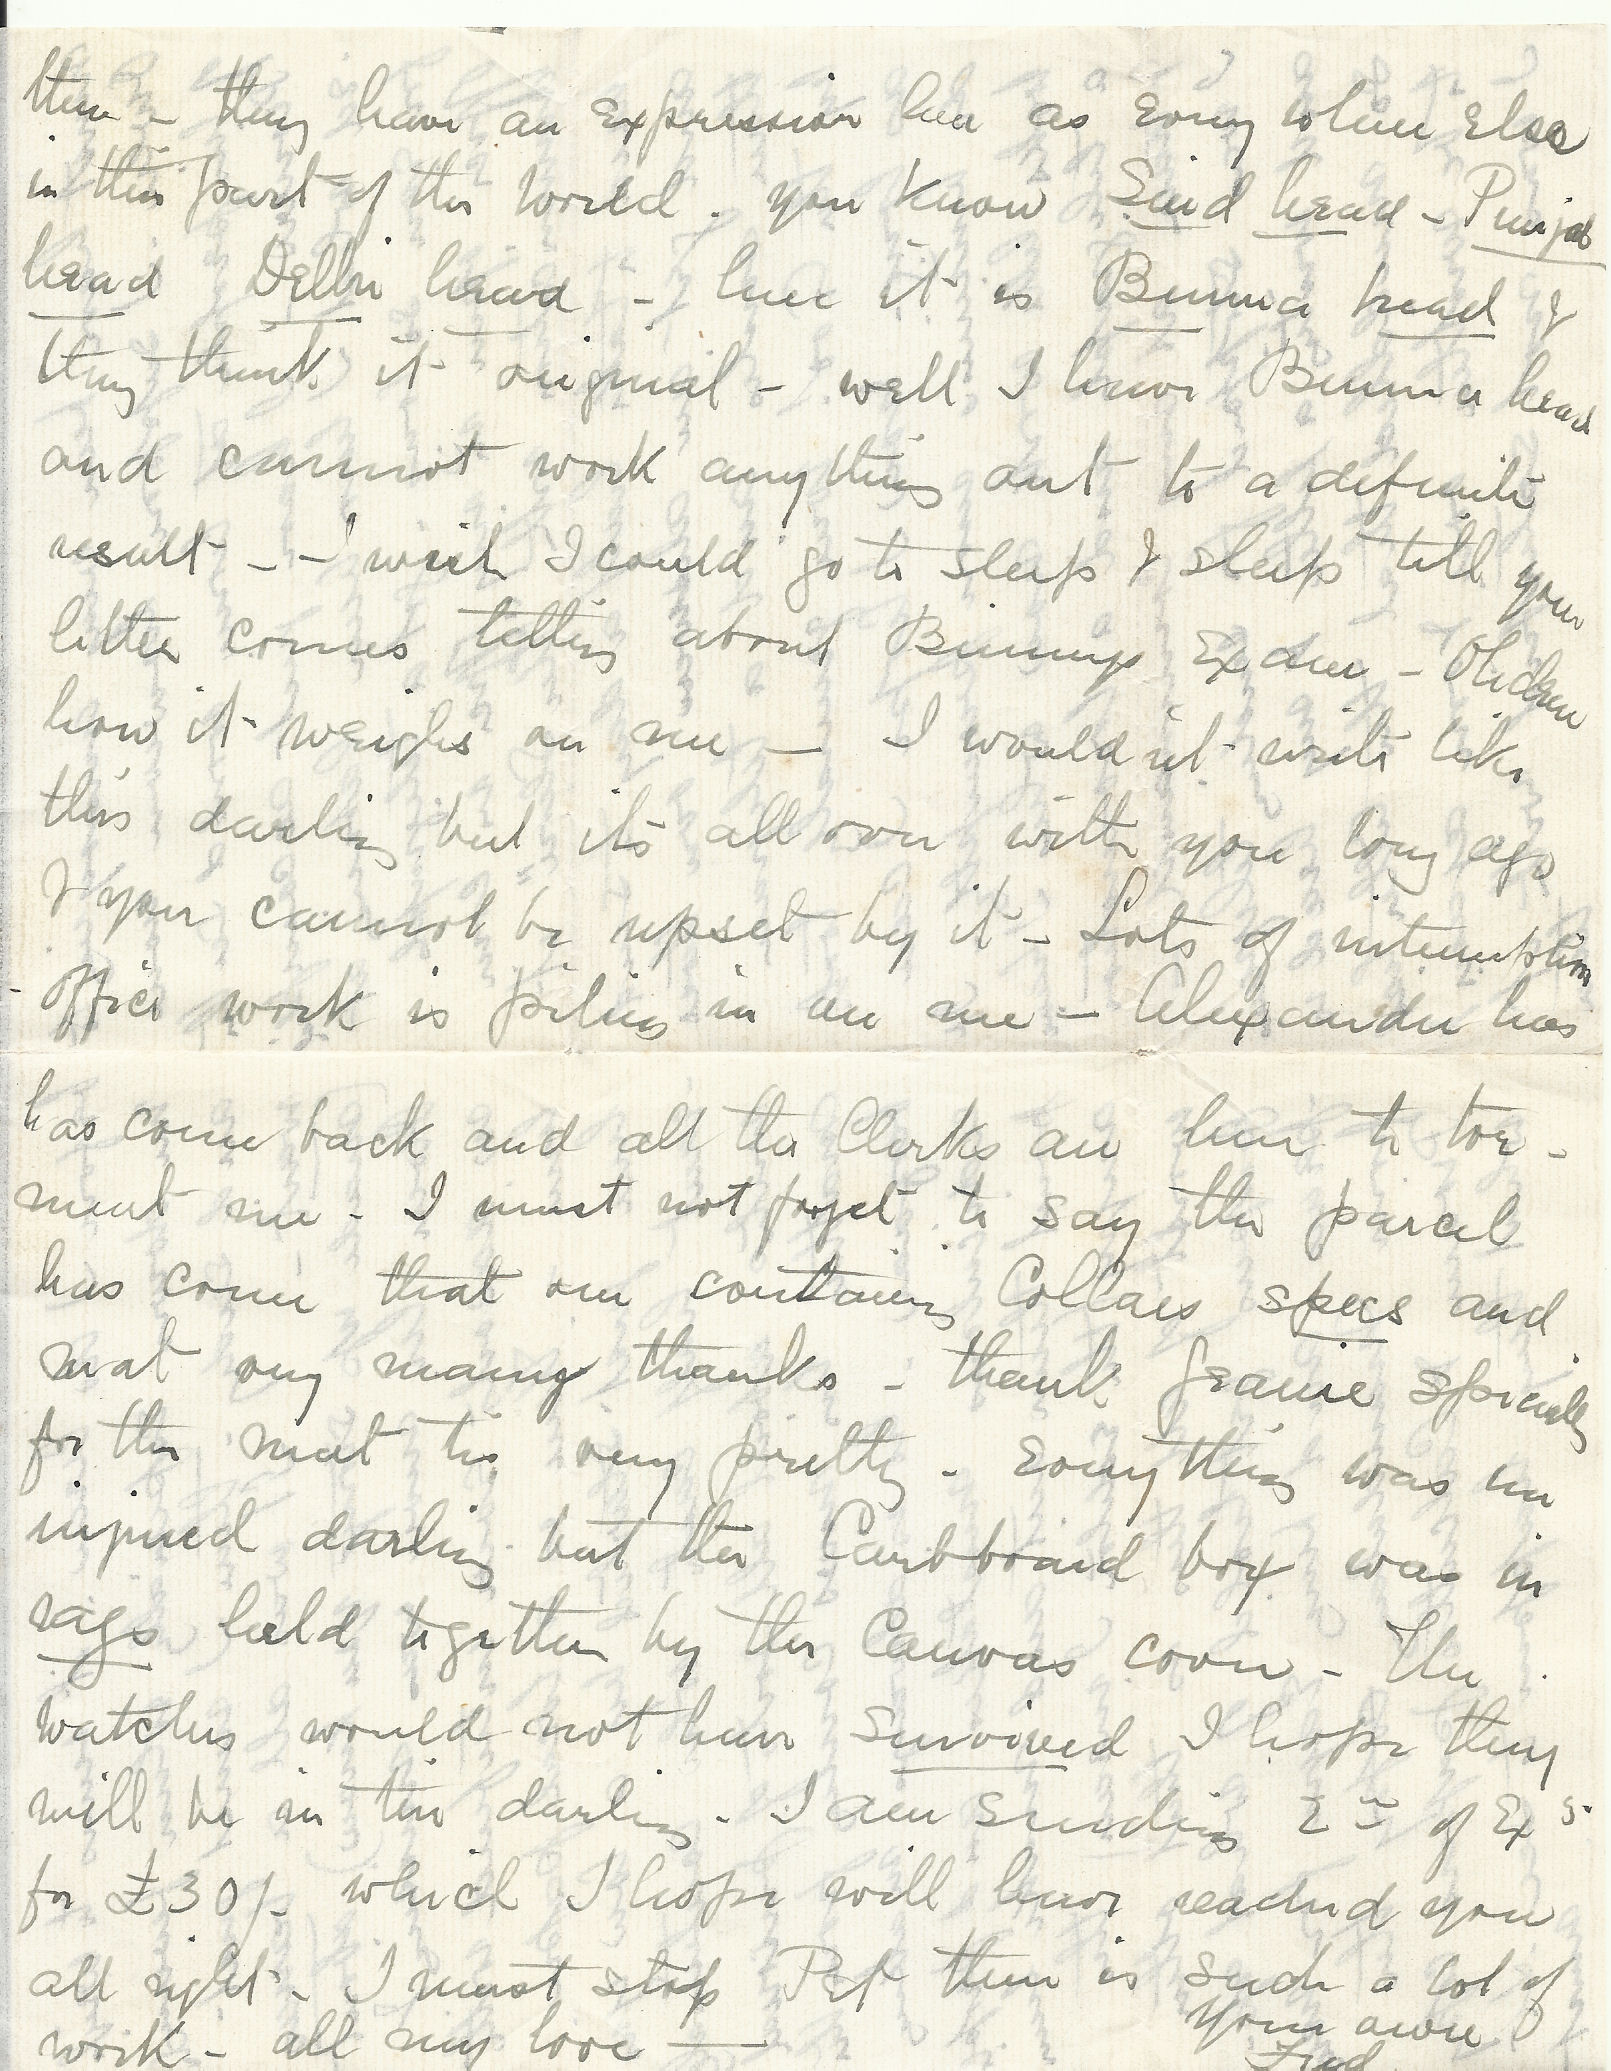 them - they have an expression here as every where else
in this part of the world. you know Sind head - Punjab
head Delhi head - here it is Burma head &
they think it original - well I have Burma head
and cannot work anything out to a definite
result - - I wish I could go to sleep & sleep till your
letter comes telling about Exam - Oh dear
how it weighs on me - I would n't write like
this darling but its all over with you long ago
& you cannot be upset by it - Lots of interruption
- office work is piling in on me - Alexander has
has come back and all the Clerks are here to tor-
ment me - I must not forget to say the parcel
has come that one containing Collars specs and
mat very many thanks - thank specially
for the mat tis very pretty. Everything was un
injured darling but the Cardboard box was in
rags held together by the Canvas cover - The
watches would not have survived I hope they
will be in tin darling. I am sending 2nd of Exs
for £30/- which I hope will have reached you
all right - I must stop Pet there is such a lot of
work - all my love —
Your own
Fred